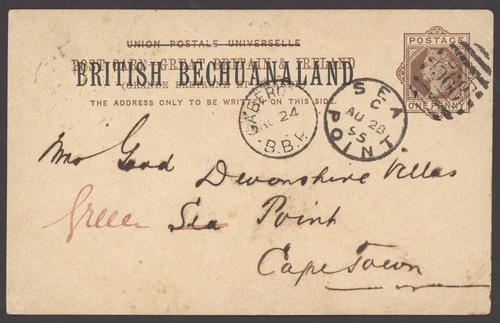 UNION POSTALE UNIVERSELLE
POST CARD GREAT BRITAIN & IRELAND
BRITISH BECHUANALAND
THE ADDRESS ONLY TO BE WRITTEN ON THIS SIDE.
POSTAGE
ONE PENNY
GABERONES
24
B.B.P.
SEA
C
AU 28
95
POINT
Mrs Good
Devonshire Villas
Green Sea Point
Cape Town